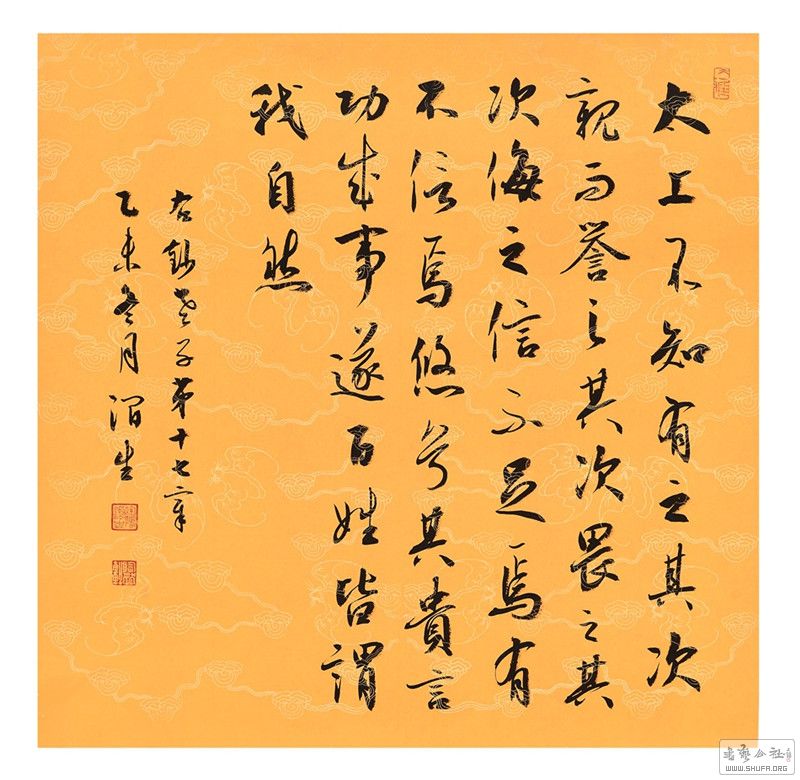 太上不知有之其次
親而誉之其次畏之其
次侮之信不足焉有
不信焉悠兮其貴言
功成事遂百姓皆謂
我自然
右 老子第十七章
乙未冬月 生
書藝公社
WWW.SHUFA.ORG